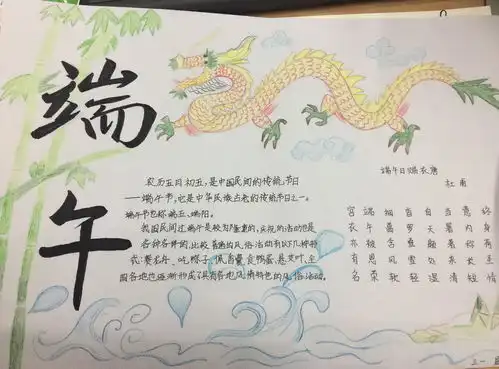 端午
农历五月初五,是中国民间的传统节日
——端午节,也是中华民族古老的传统节日之一。
端午节也称端五、端阳。
我国民间过端午是较为隆重的,庆祝的活动也是
各种各样的,比较普遍的风俗活动有以下几种形
式:赛龙舟、吃粽子、佩香囊、食鸭蛋、悬艾叶、全
国各地也逐渐形成了具有各地风情特色的民俗活动.
端午日赐衣 唐
杜甫
宫衣亦有名
端午被恩荣
细葛含风软
香罗叠雪轻
自天题处湿
当暑著来清
意内称长短
三一